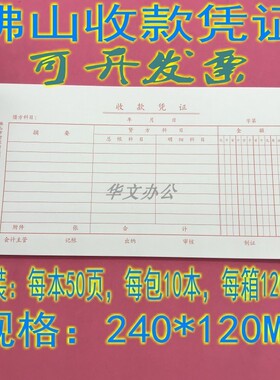 佛山收款凭证
可开发票
收款凭证
年 月 日
借方科目: 字第
摘要 贷方科目 金额
总账科目 明细科目
华文办公
附件 张 合计
会计主管 记账 出纳 审核 制证
装：每本50页，每包10本，每箱12
规格：240*120M